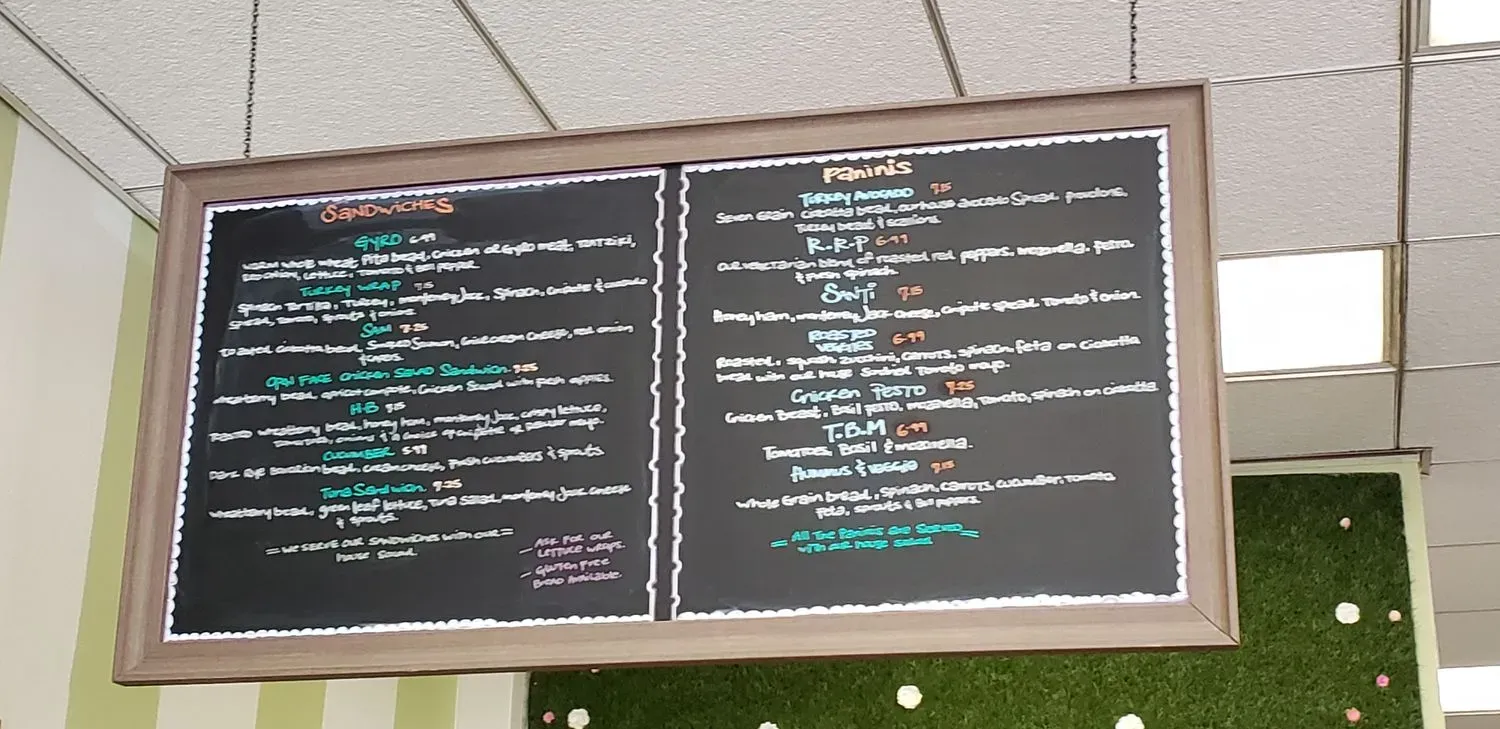 SANDWICHES
GYRO 6.99
warm whole wheat Pita bread, Chicken or Gyro meat, TZATZIKI,
red onion, lettuce, Tomato & Bell pepper.
TURKEY WRAP 7.5
Spinach Tortilla, Turkey, monterey Jack, Spinach, chipotle & avocado
spread, Tomato, sprouts & onions.
SAM 7.25
Toasted ciabatta bread, Smoked Salmon, cream cheese, red onion
& capers.
OPN FAKE Chicken Salad Sandwich 7.25
wheatberry bread, apricot compote, Chicken Salad with fresh apples.
H.B 7.15
Toasted wheatberry bread, honey ham, monterey Jack, crispy lettuce,
Tomatoes, onions & a choice of chipotle or mayo.
CUCUMBER 5.99
Dark Rye bread, cream cheese, Fresh cucumbers & sprouts.
Tuna Sandwich 7.25
wheatberry bread, green leaf lettuce, Tuna Salad, monterey Jack cheese
& sprouts.
= WE SERVE OUR SANDWICHES with our =
house Salad.
- ASK FOR OUR
LETTUCE WRAPS.
- GLUTEN FREE
Bread Available.
Paninis
TURKEY AVOCADO 7.15
Seven Grain Ciabatta bread, our house avocado Spread, provolone,
Turkey breast & scallions.
R.R.P 6.99
our vegetarian blend of roasted red peppers, mozzarella, feta,
& Fresh spinach.
SANTI 7.15
Honey ham, monterey Jack cheese, chipotle spread, Tomato & onion.
ROASTED
VEGGIES 6.99
Roasted, squash, zucchini, carrots, spinach, feta on ciabatta
bread with our house Sundried Tomato mayo.
Chicken PESTO 7.25
Chicken Breast, Basil pesto, mozzarella, Tomato, spinach on ciabatta
T.B.M 6.99
Tomatoes, Basil & mozzarella.
Hummus & VEGGIE 7.15
Whole Grain bread, spinach, carrots, cucumber, tomato
Feta, sprouts & Bell peppers.
= All The Paninis are Served =
with our house salad.